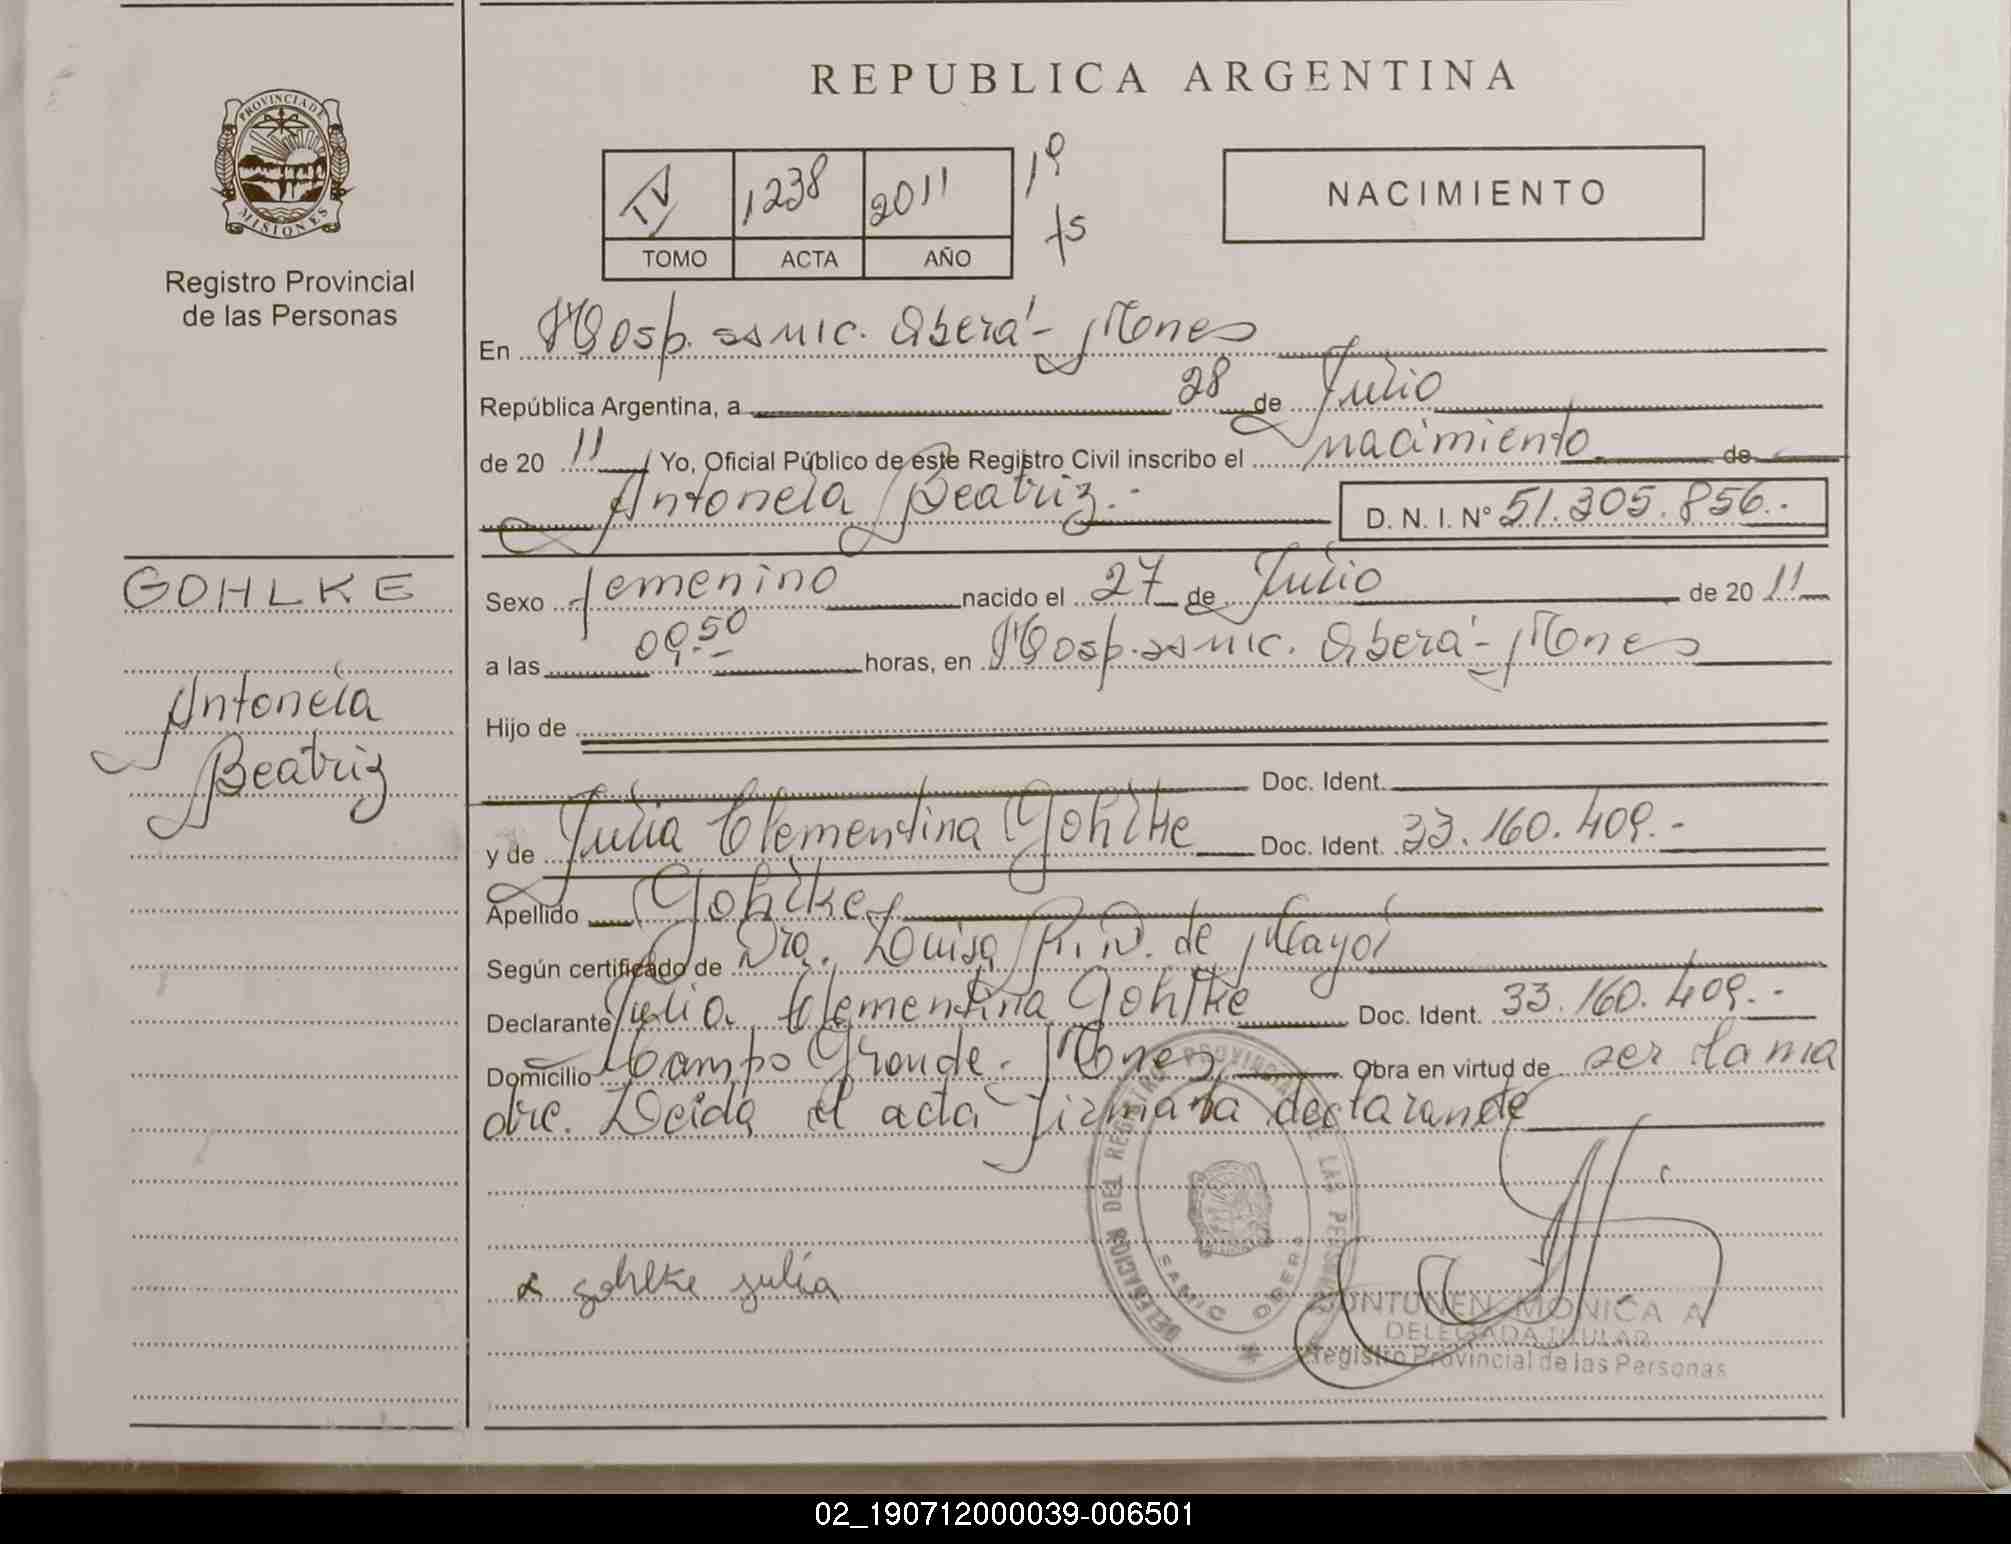 REPUBLICA ARGENTINA
PROVINCIA DE
MISIONES
Registro Provincial
de las Personas
IV 1238 2011 1º
TOMO ACTA AÑO
NACIMIENTO
En Hosp. SAMIC. Oberá - Mones
República Argentina, a 28 de Julio
de 20 11 Yo, Oficial Público de este Registro Civil inscribo el nacimiento de
Antonela Beatriz.- D. N. I. Nº 51.305.856.-
GOHLKE
Antonela
Beatriz
Sexo femenino nacido el 27 de Julio de 20 11
a las 09.50 horas, en Hosp. SAMIC. Oberá - Mones
Hijo de
Doc. Ident.
y de Julia Clementina Gohlke Doc. Ident. 33.160.409.-
Apellido Gohlke
Según certificado de Dra. Luisa R. N. de Mayol
Declarante Julia Clementina Gohlke Doc. Ident. 33.160.409.-
Domicilio Campo Grande - Mones Obra en virtud de ser la ma
dre. Leida el acta firma la declarante
DELEGACION DEL REGISTRO PROVINCIAL DE LAS PERSONAS
SAMIC OBERA
x gohlke julia
MONICA A
DELEGADA TITULAR
Registro Provincial de las Personas
02_190712000039-006501